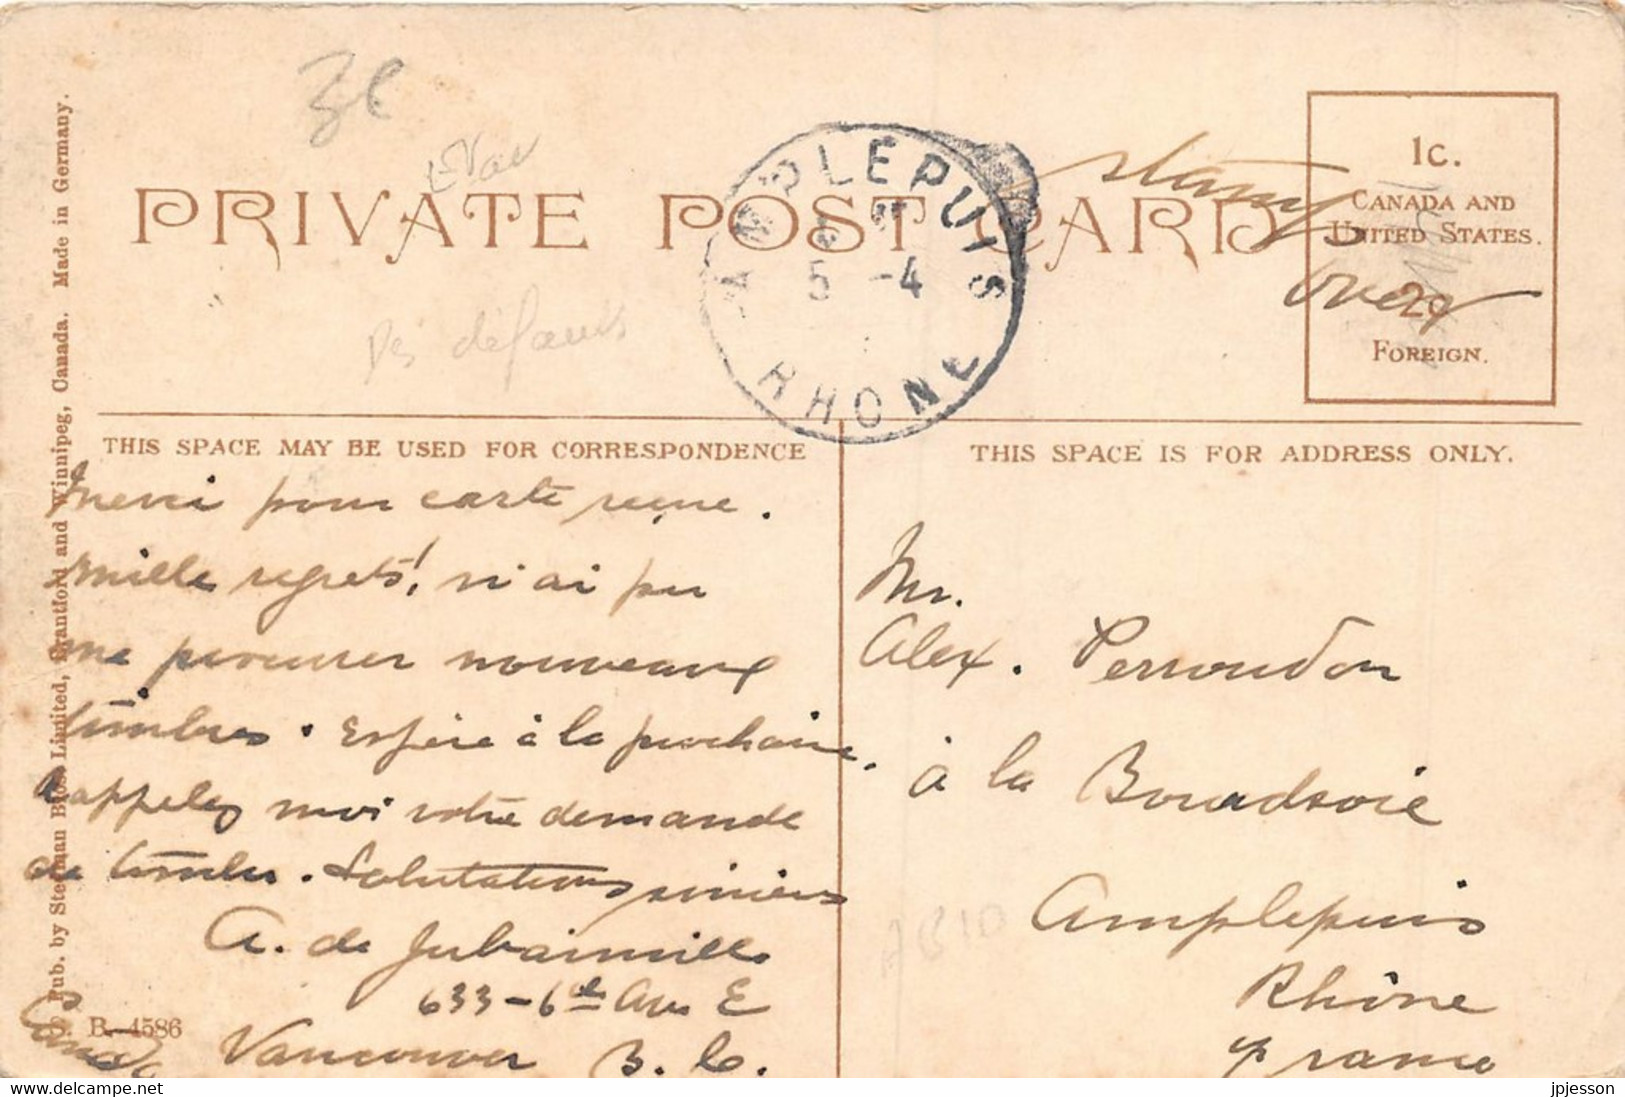 3€
EVar
PRIVATE POST CARD
AMPLEPUIS
5 -4
RHONE
stamp
over
1c.
CANADA AND
UNITED STATES.
2c
FOREIGN.
Ds défauts
THIS SPACE MAY BE USED FOR CORRESPONDENCE
Merci pour carte reçue.
Mille regrets! n'ai pu
me procurer nouveaux
timbres. Espère à la prochaine.
Rappelez moi votre demande
de timbres. Salutations sincères
A. de Jubainville
633-6th Ave E
Vancouver B.C.
Canada
THIS SPACE IS FOR ADDRESS ONLY.
Mr.
Alex. Perroudon
à la Bourdsoie
Amplepuis
Rhône
France
A810
Pub. by Stedman Bros. Limited, Brantford and Winnipeg, Canada. Made in Germany.
S. B. 4586
delcampe.net
jpjesson